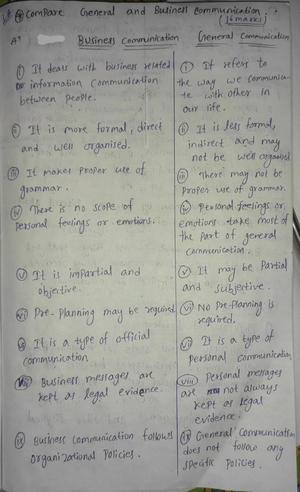 Compare General and Business Communication.
(16 marks)
Business Communication
General Communication
(i) It deals with business related
or information communication
between people.
(ii) It is more formal, direct
and well organised.
(iii) It makes proper use of
grammar.
(iv) There is no scope of
personal feelings or emotions.
(v) It is impartial and
objective.
(vi) Pre-Planning may be required
It is a type of official
communication
Business messages are
kept as legal evidence.
(ix) Business communication follows
organizational Policies.
(i) It refers to
the way we communica-
te with other in
our life.
(ii) It is less formal,
indirect and may
not be well organised
(iii) There may not be
Proper use of grammar.
(iv) Personal feelings or
emotions take most of
the part of general
communication.
(v) It may be Partial
and subjective.
(vi) No Pre-Planning is
required.
(vii) It is a type of
Personal communication
(viii) Personal messages
are not always
kept as legal
evidence.
(ix) General communication
does not follow any
specific Policies.